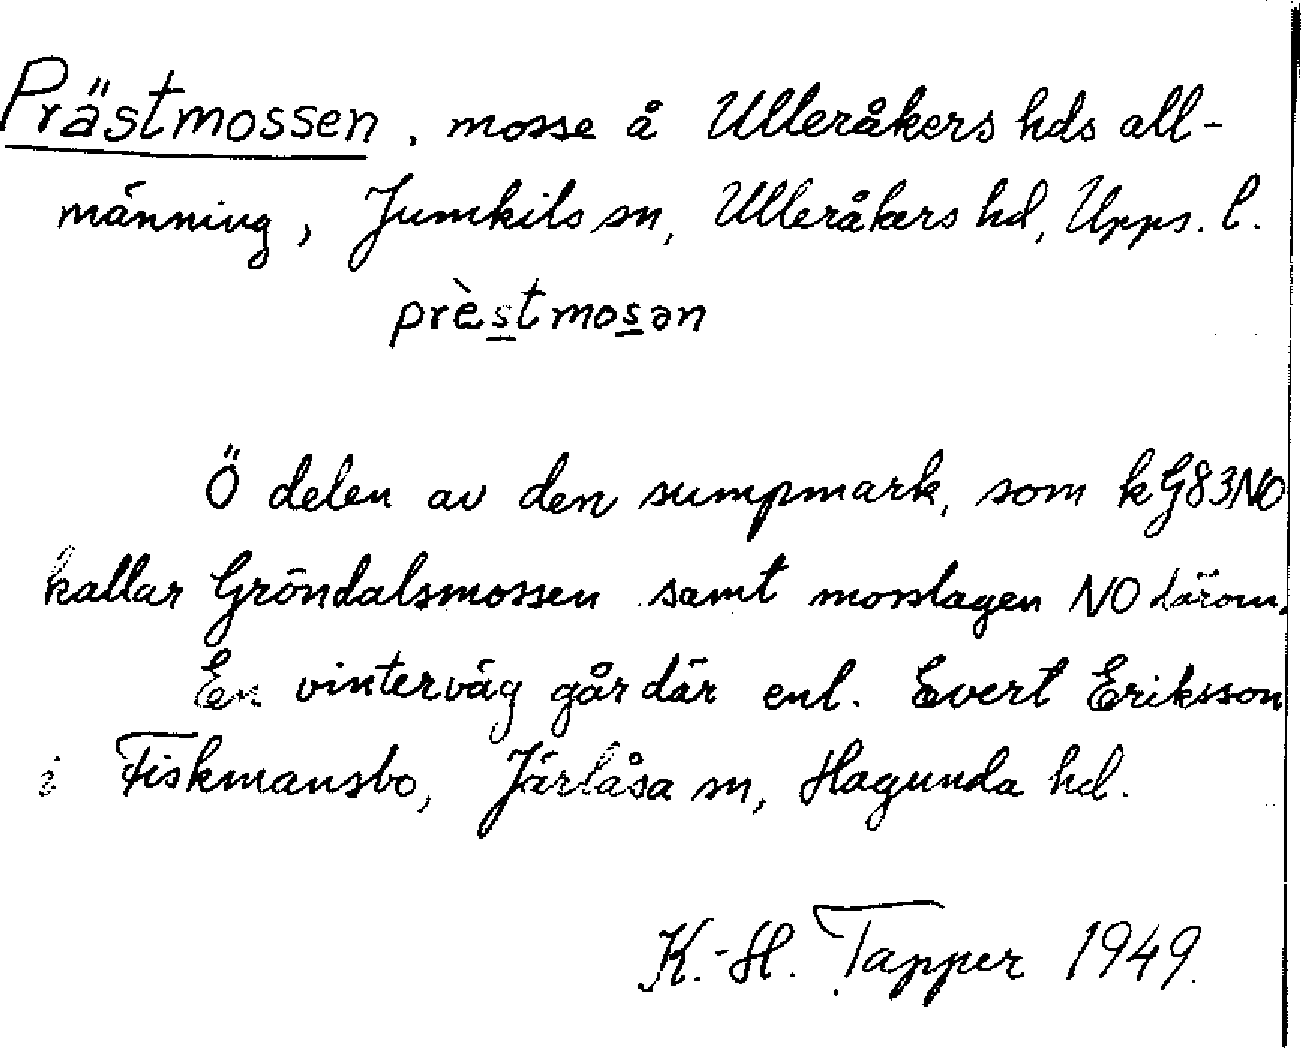 Prästmossen, mosse å Ulleråkers hds all-
männing, Jumkils sn, Ulleråkers hd, Upps. l.
prèstmosən
Ö delen av den sumpmark, som kG83NO
kallar Gröndalsmossen samt mosslagen NO därom.
En vinterväg går där enl. Evert Eriksson
i Fiskmansbo, Järlåsa sn, Hagunda hd.
K.-H. Tapper 1949.